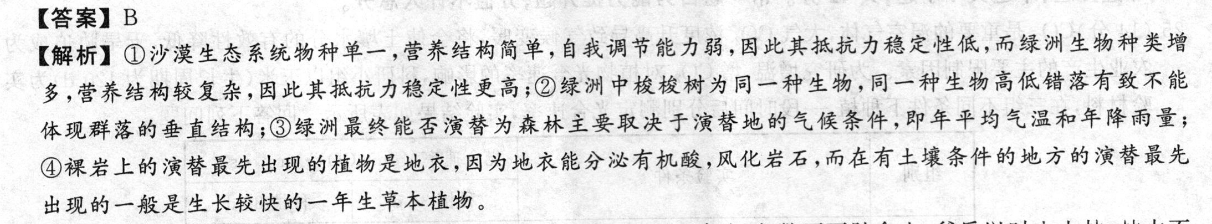 【答案】B
【解析】①沙漠生态系统物种单一,营养结构简单,自我调节能力弱,因此其抵抗力稳定性低,而绿洲生物种类增
多,营养结构较复杂,因此其抵抗力稳定性更高;②绿洲中梭梭树为同一种生物,同一种生物高低错落有致不能
体现群落的垂直结构;③绿洲最终能否演替为森林主要取决于演替地的气候条件,即年平均气温和年降雨量;
④裸岩上的演替最先出现的植物是地衣,因为地衣能分泌有机酸,风化岩石,而在有土壤条件的地方的演替最先
出现的一般是生长较快的一年生草本植物。